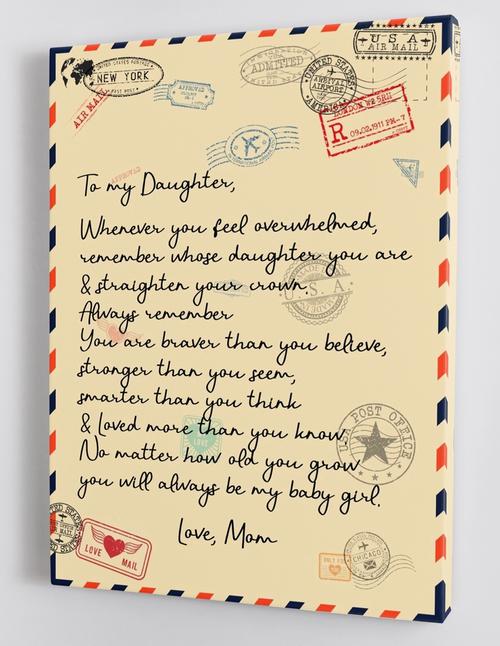 UNITED STATES POSTAGE
NEW YORK
AIR MAIL
APPROVED
ADMITTED
UNITED STATES
AIRPORT
AMERICA
U S A
AIR MAIL
LONDON W2 5RH
R 09.02.1911 PM-7
APPROVED
To my Daughter,
Whenever you feel overwhelmed,
remember whose daughter you are
& straighten your crown.
Always remember
You are braver than you believe,
stronger than you seem,
smarter than you think
& Loved more than you know.
No matter how old you grow
you will always be my baby girl.
Love, Mom
MADE IN
U.S.A.
LOVE
US POST OFFICE
LOVE MAIL
CHICAGO